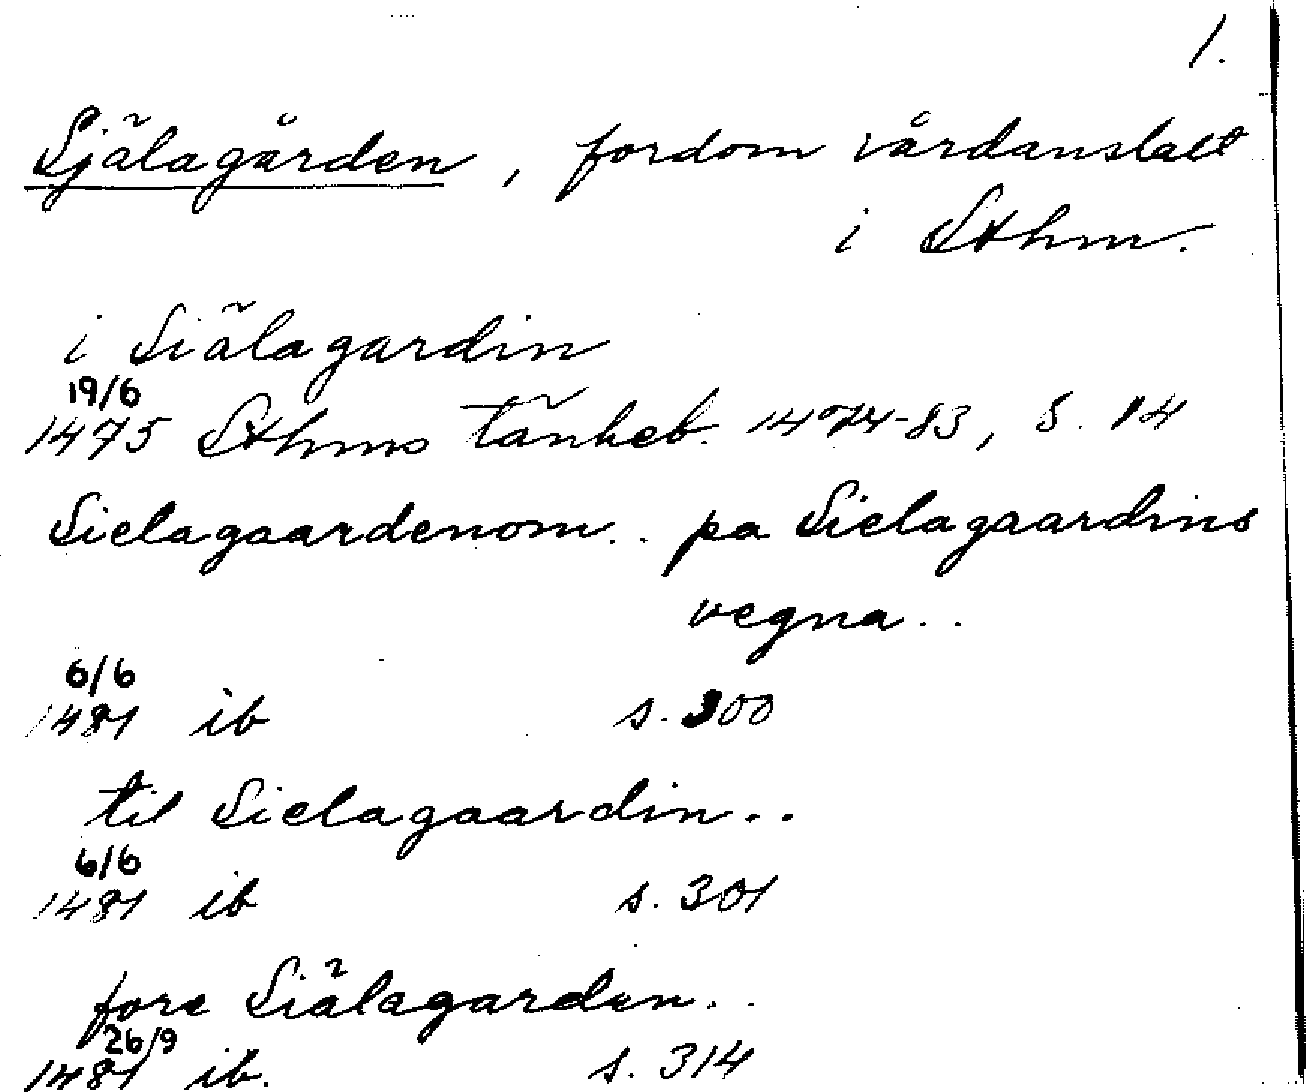 1.
Själagården, fordom vårdanstalt
i Sthm.
i Siälagardin
19/6
1475 Sthms tänkeb. 1474-83, s. 14
Sielagaardenom.. pa Sielagaardins
vegna..
6/6
1481 ib s. 300
til Sielagaardin..
6/6
1481 ib s. 301
fore Siälagarden..
26/9
1481 ib. s. 314